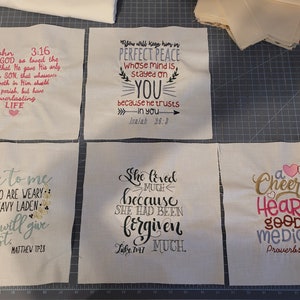 ohn 3:16
GOD so loved the
that He gave His only
SON, that whosoever
in Him should
perish, but have
everlasting
LIFE
You will keep him in
PERFECT PEACE
whose mind is
stayed on
YOU
because he trusts
in you
Isaiah 26:3
e to me
O ARE WEARY
AVY LADEN
will give
st.
MATTHEW 11:28
She loved
MUCH
because
SHE HAD BEEN
forgiven
MUCH.
Luke 7:47
a
Cheer
HEAR
good
MEDIC
Proverbs